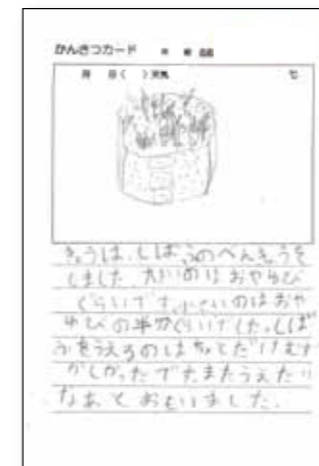 かんさつカード 月 組 名前
月 日( )天気 ℃
きょうは、しばふのべんきょうを
しました。大いのはおやゆび
ぐらいです。小さいのはおや
ゆびの半分ぐらいでした。しば
ふをうえるのはちょとだけむず
かしかったでたまたうえたい
なあとおもいました。